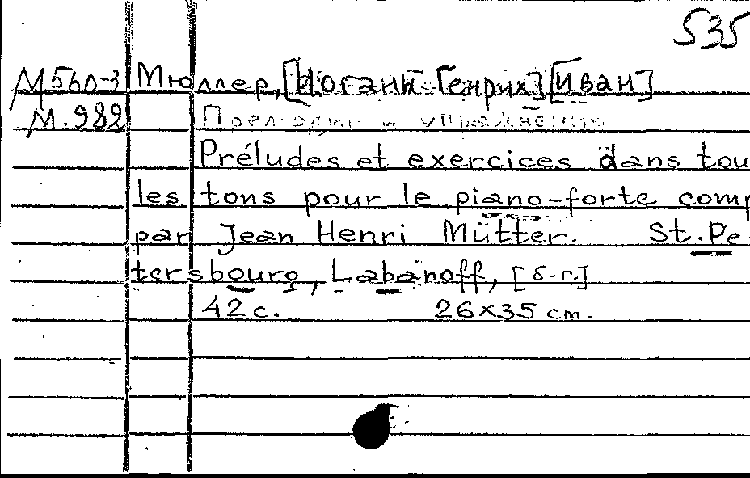 535
М560-3 Мюллер, [Иоганн Генрих] [Иван]
М.982 Прелюдии и упражнения
Préludes et exercices dans tou
les tons pour le piano-forte comp
par Jean Henri Mütter. St.Pe-
tersbourg, Labanoff, [б.г.]
42 с. 26×35 cm.